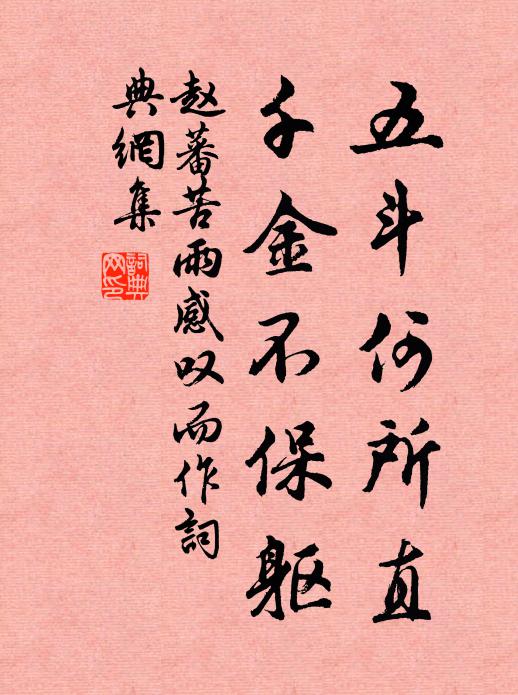 五斗何所直
千金不保躯
赵蕃苦雨感叹而作词
典網集
詞典
网印